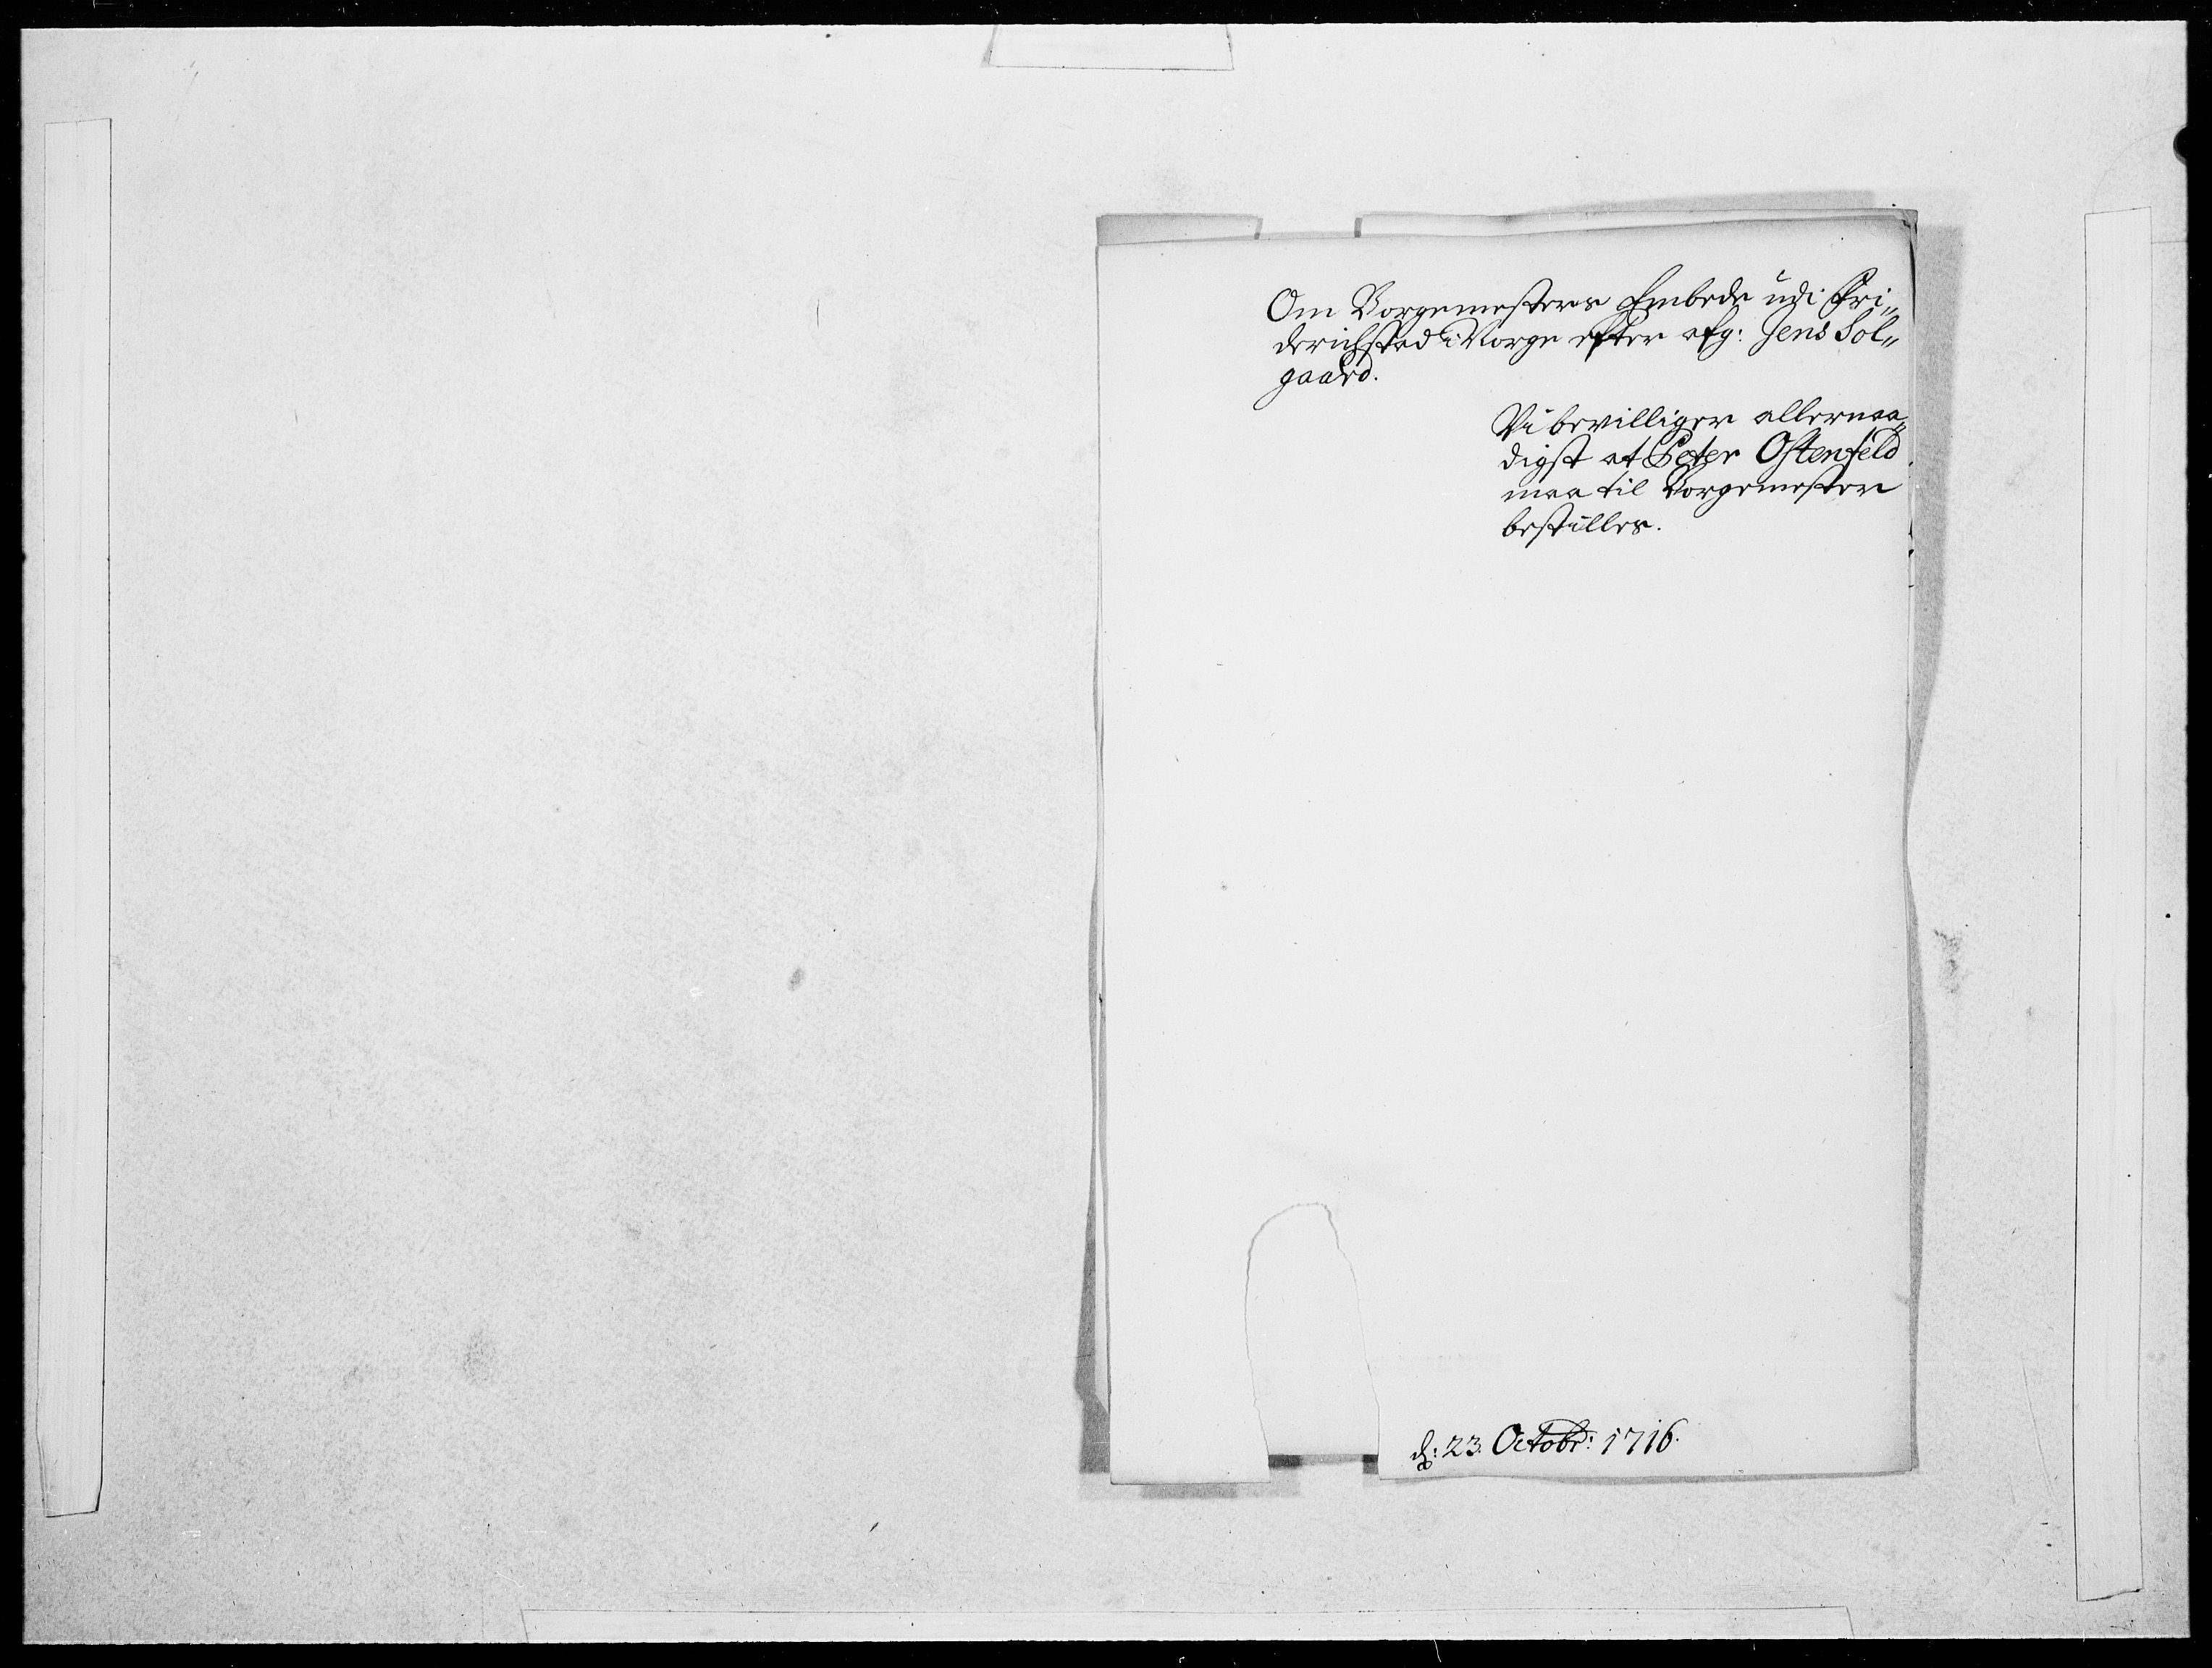 Om Borgemesters Embede udi Fri„
derichstad i Norge efter afg: Jens Sol„
gaard.
Vi bevilliger allernaa„
digst at Peter Ostenfeld
maa til Borgemester
bestilles.
d: 23. Octobr: 1716.